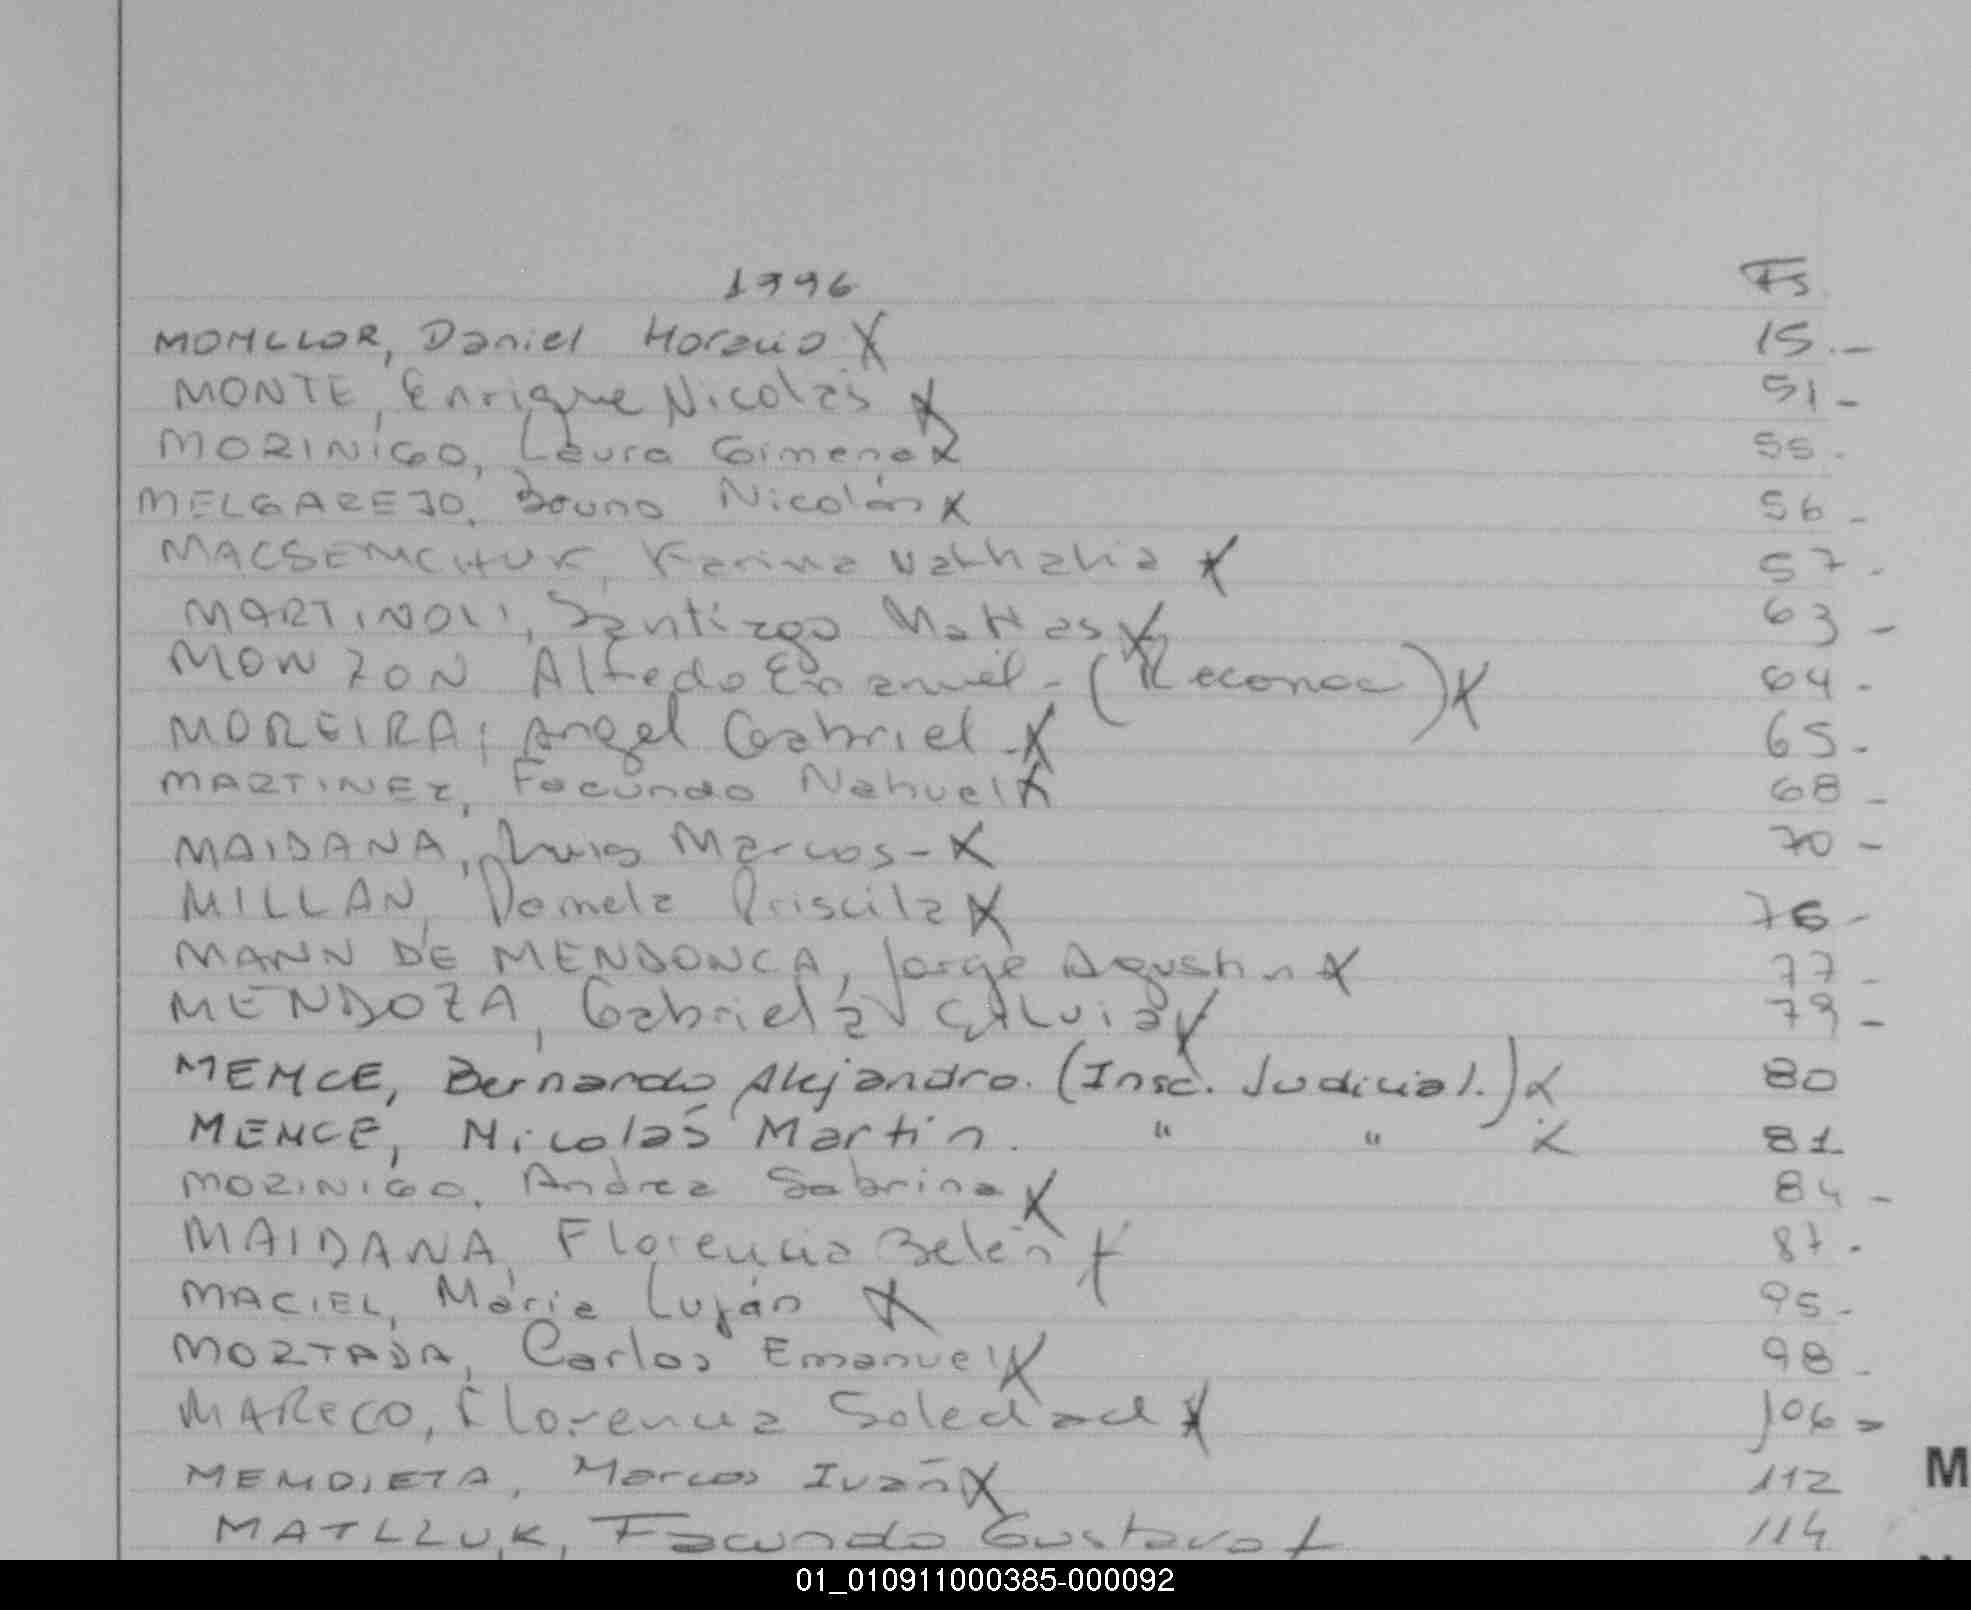 1996 Fs
MONLLOR, Daniel Horacio X 15.-
MONTE, Enrique Nicolás X 51-
MORINIGO, Laura Gimena X 55.
MELGAREJO, Bruno Nicolás X 56-
MACSEMCHUK, Karina Nathalia X 57-
MARTINOLI, Santiago Matías X 63-
MONZON Alfredo Emanuel-(Reconoc)X 64-
MOREIRA, Angel Gabriel-X 65-
MARTINEZ, Facundo Nahuel X 68-
MAIDANA, Luis Marcos-X 70-
MILLAN, Pamela Priscila X 76-
MANN DE MENDONCA, Jorge Agustin X 77-
MENDOZA, Gabriela Silvia X 79-
MENCE, Bernardo Alejandro. (Insc. Judicial.)X 80
MENCE, Nicolás Martín. " " X 81
MORINIGO, Andrea Sabrina X 84-
MAIDANA, Florencia Belén X 87-
MACIEL, María Luján X 95-
MORTADA, Carlos Emanuel X 98-
MARECO, Florencia Soledad X 106-
MENDIETA, Marcos Iván X 112
MATLLUK, Facundo Gustavo X 114
M
01_010911000385-000092